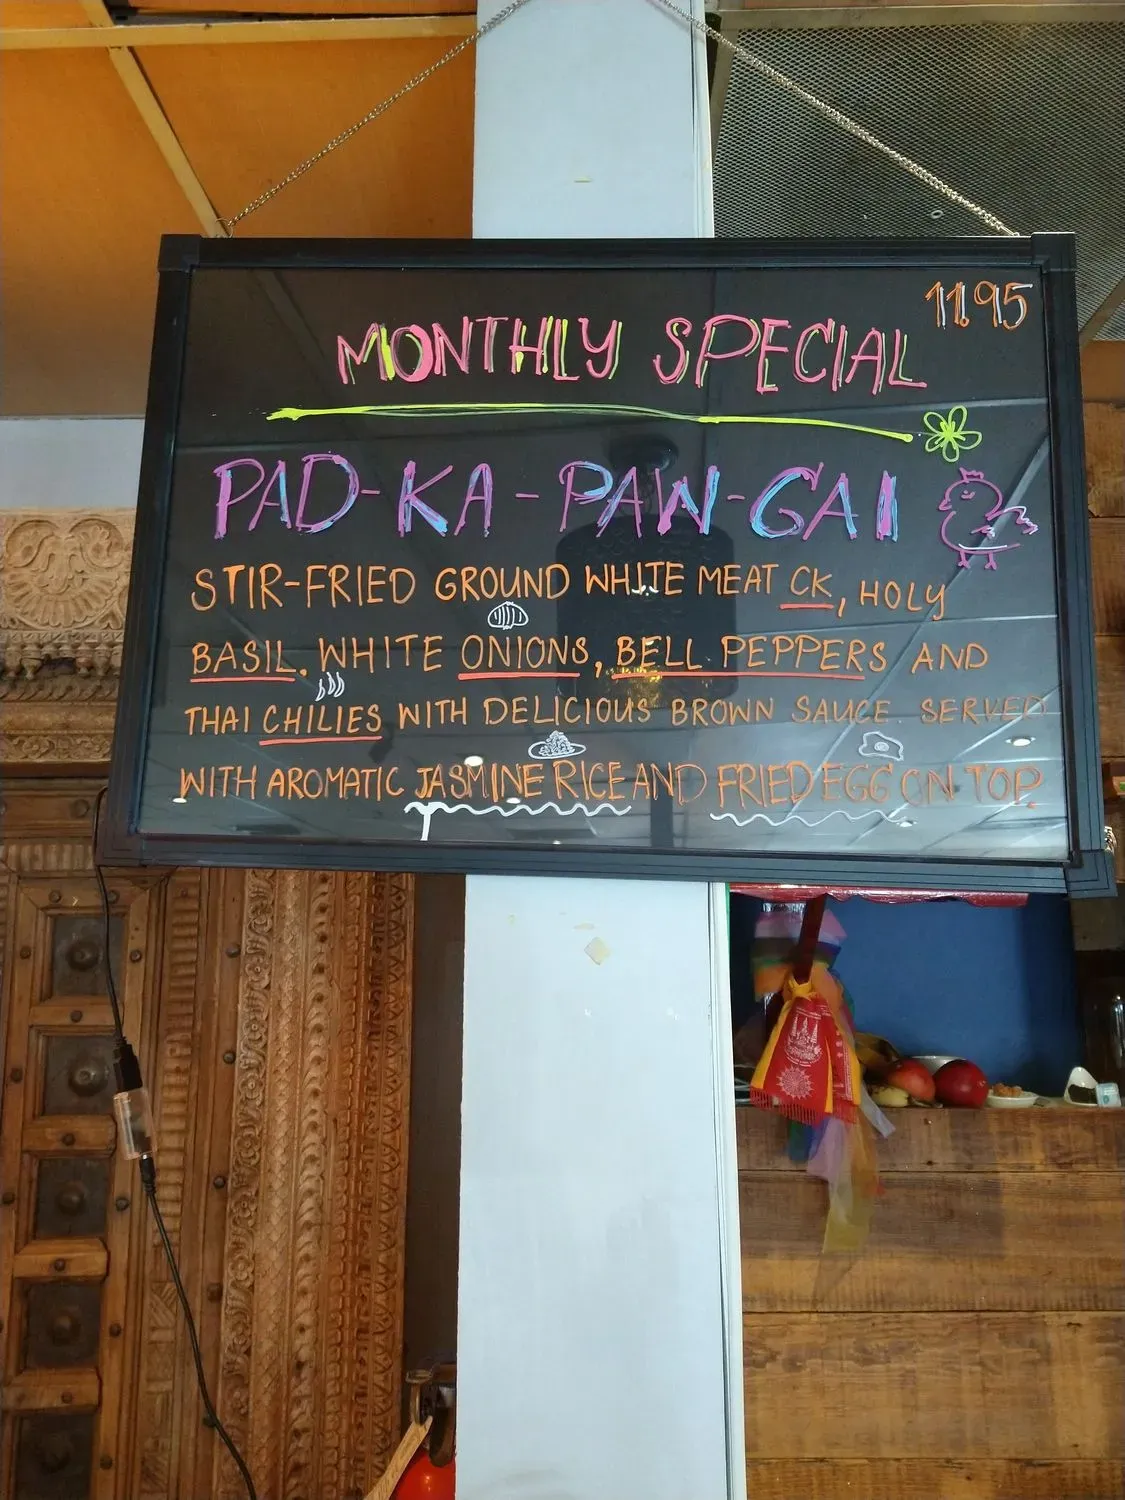 11.95
MONTHLY SPECIAL
PAD-KA-PAW-GAI
STIR-FRIED GROUND WHITE MEAT CK, HOLY
BASIL. WHITE ONIONS, BELL PEPPERS AND
THAI CHILIES WITH DELICIOUS BROWN SAUCE. SERVED
WITH AROMATIC JASMINE RICE AND FRIED EGG ON TOP.